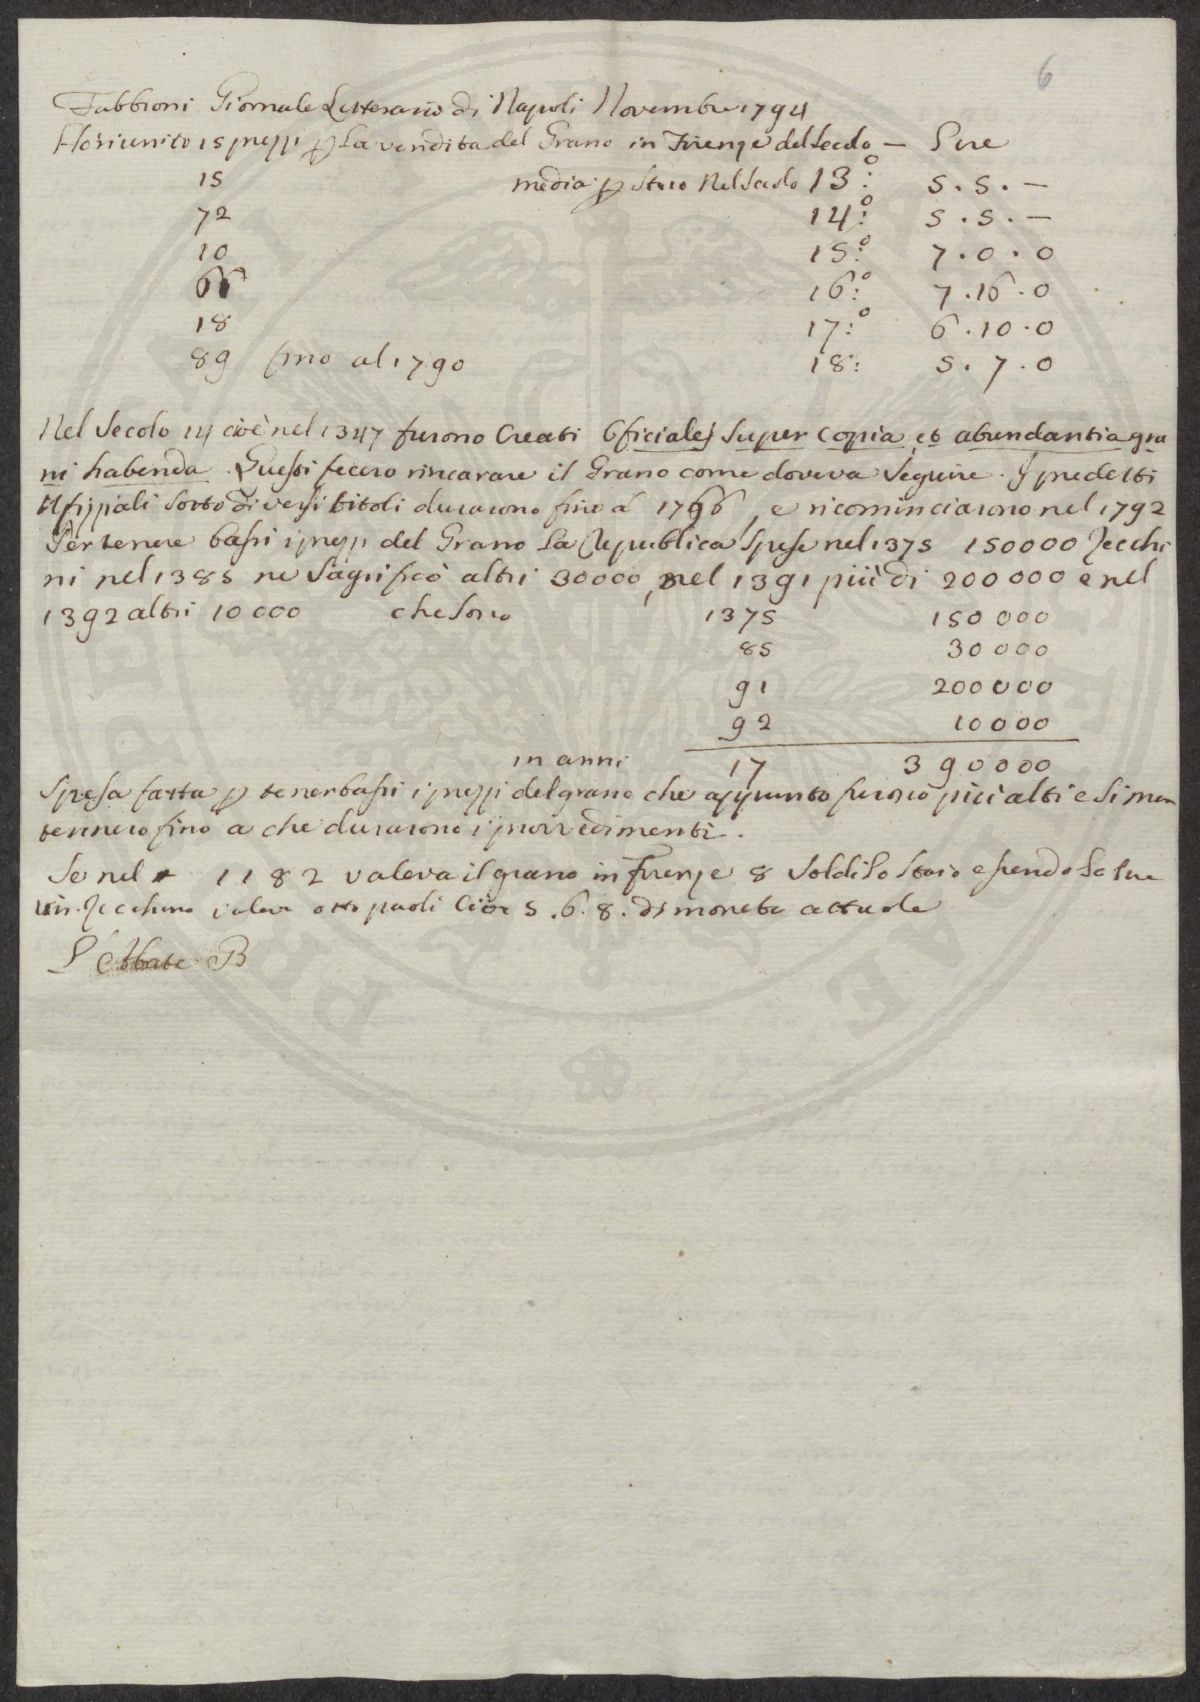 6
Fabbroni Giornale Letterario di Napoli Novembre 1794
Ho riunito 15 prezzi p La vendita del Grano in Firenze del Secolo — Lire
15 media p Staio Nel Secolo 13:º 5.5.—
72 14:º 5.5.—
10 15:º 7.0.0
66 16:º 7.16.0
18 17:º 6.10.0
89 fino al 1790 18: 5.7.0
Nel Secolo 14 cioè nel 1347 furono Creati Oficiales Super Copia et abundantia gra
ni habenda. Questi fecero rincarare il Grano come doveva Seguire. I predetti
Ufizziali Sotto diversi titoli durarono fino al 1766, e ricominciarono nel 1792
Per tenere bassi i prezzi del Grano La Republica Spese nel 1375 150000 Zecchi
ni nel 1385 ne Sagrificò altri 30000, nel 1391 più di 200000 e nel
1392 altri 10000 che Sono 1375 150000
85 30000
91 200000
92 10000
in anni 17 390000
Spesa fatta p tener bassi i prezzi del grano che appunto furono più alti e Si man
tennero fino a che durarono i provvedimenti.
Se nel 1182 valeva il grano in Firenze 8 Soldi Lo Staio essendo La Lira
un Zecchino valeva otto paoli Cioè 5.6.8. di moneta attuale
L'Abbate B